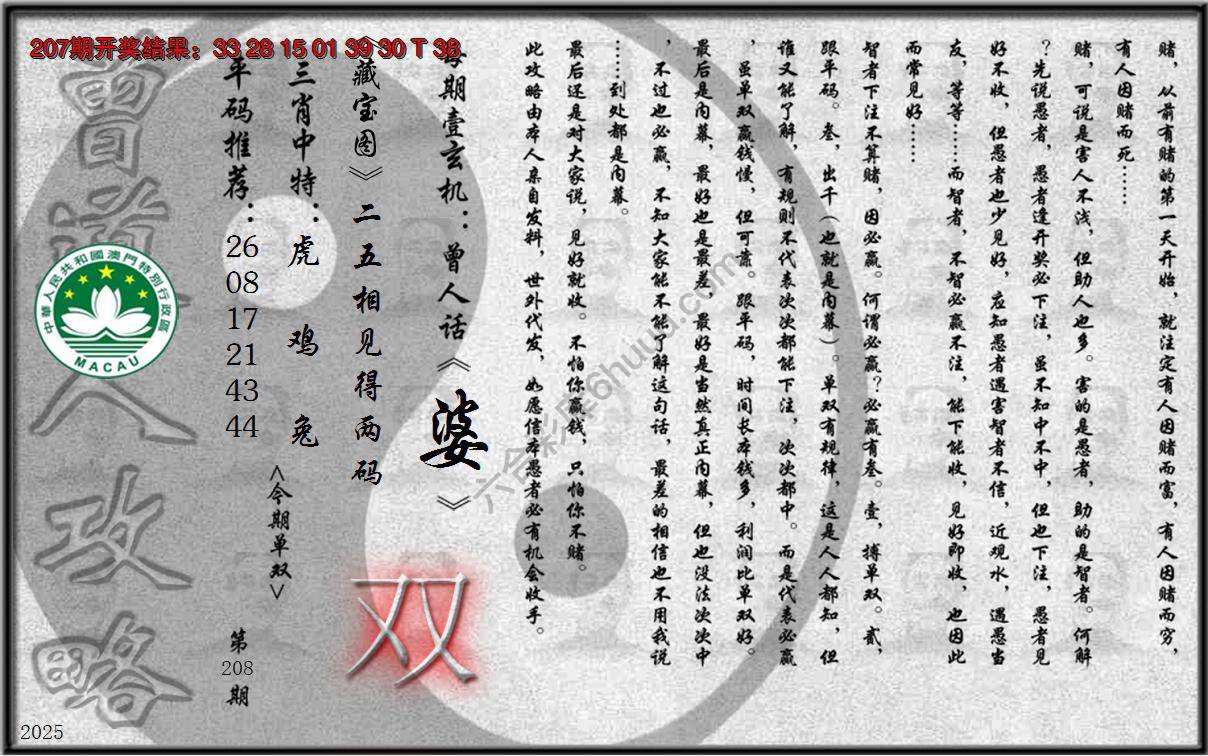 207期开奖结果：33 28 15 01 39 30 T 38
赌，从前有赌的第一天开始，就注定有人因赌而富，有人因赌而穷，
有人因赌而死……
赌，可说是害人不浅，但助人也多。害的是愚者，助的是智者。何解
？先说愚者，愚者逢开奖必下注，虽不知中不中，但也下注，愚者见
好不收，但愚者也少见好，应知愚者遇害智者不信，近观水，遇愚当
友，等等……而智者，不智必赢不注，能下能收，见好即收，也因此
而常见好……
智者下注不算赌，因必赢。何谓必赢？必赢有叁。壹，搏单双。贰，
跟平码。叁，出千（也就是内幕）。单双有规律，这是人人都知，但
谁又能了解，有规则不代表次次都能下注，次次都中。而是代表必赢
，虽单双赢钱慢，但可靠。跟平码，时间长本钱多，利润比单双好。
最后是内幕，最好也是最差，最好是当然真正内幕，但也没法次次中
，不过也必赢，不知大家能不能了解这句话，最差的相信也不用我说
……到处都是内幕。
最后还是对大家说，见好就收。不怕你赢钱，只怕你不赌。
此攻略由本人亲自发料，世外代发，如愿信本愚者必有机会收手。
每期壹玄机：曾人话《婆》
《藏宝图》二五相见得两码
三肖中特：虎 鸡 兔
平码推荐：26 08 17 21 43 44
<今期单双>
双
第208期
曾道人攻略
中華人民共和國澳門特別行政區
MACAU
六合彩库6huuu.com
2025